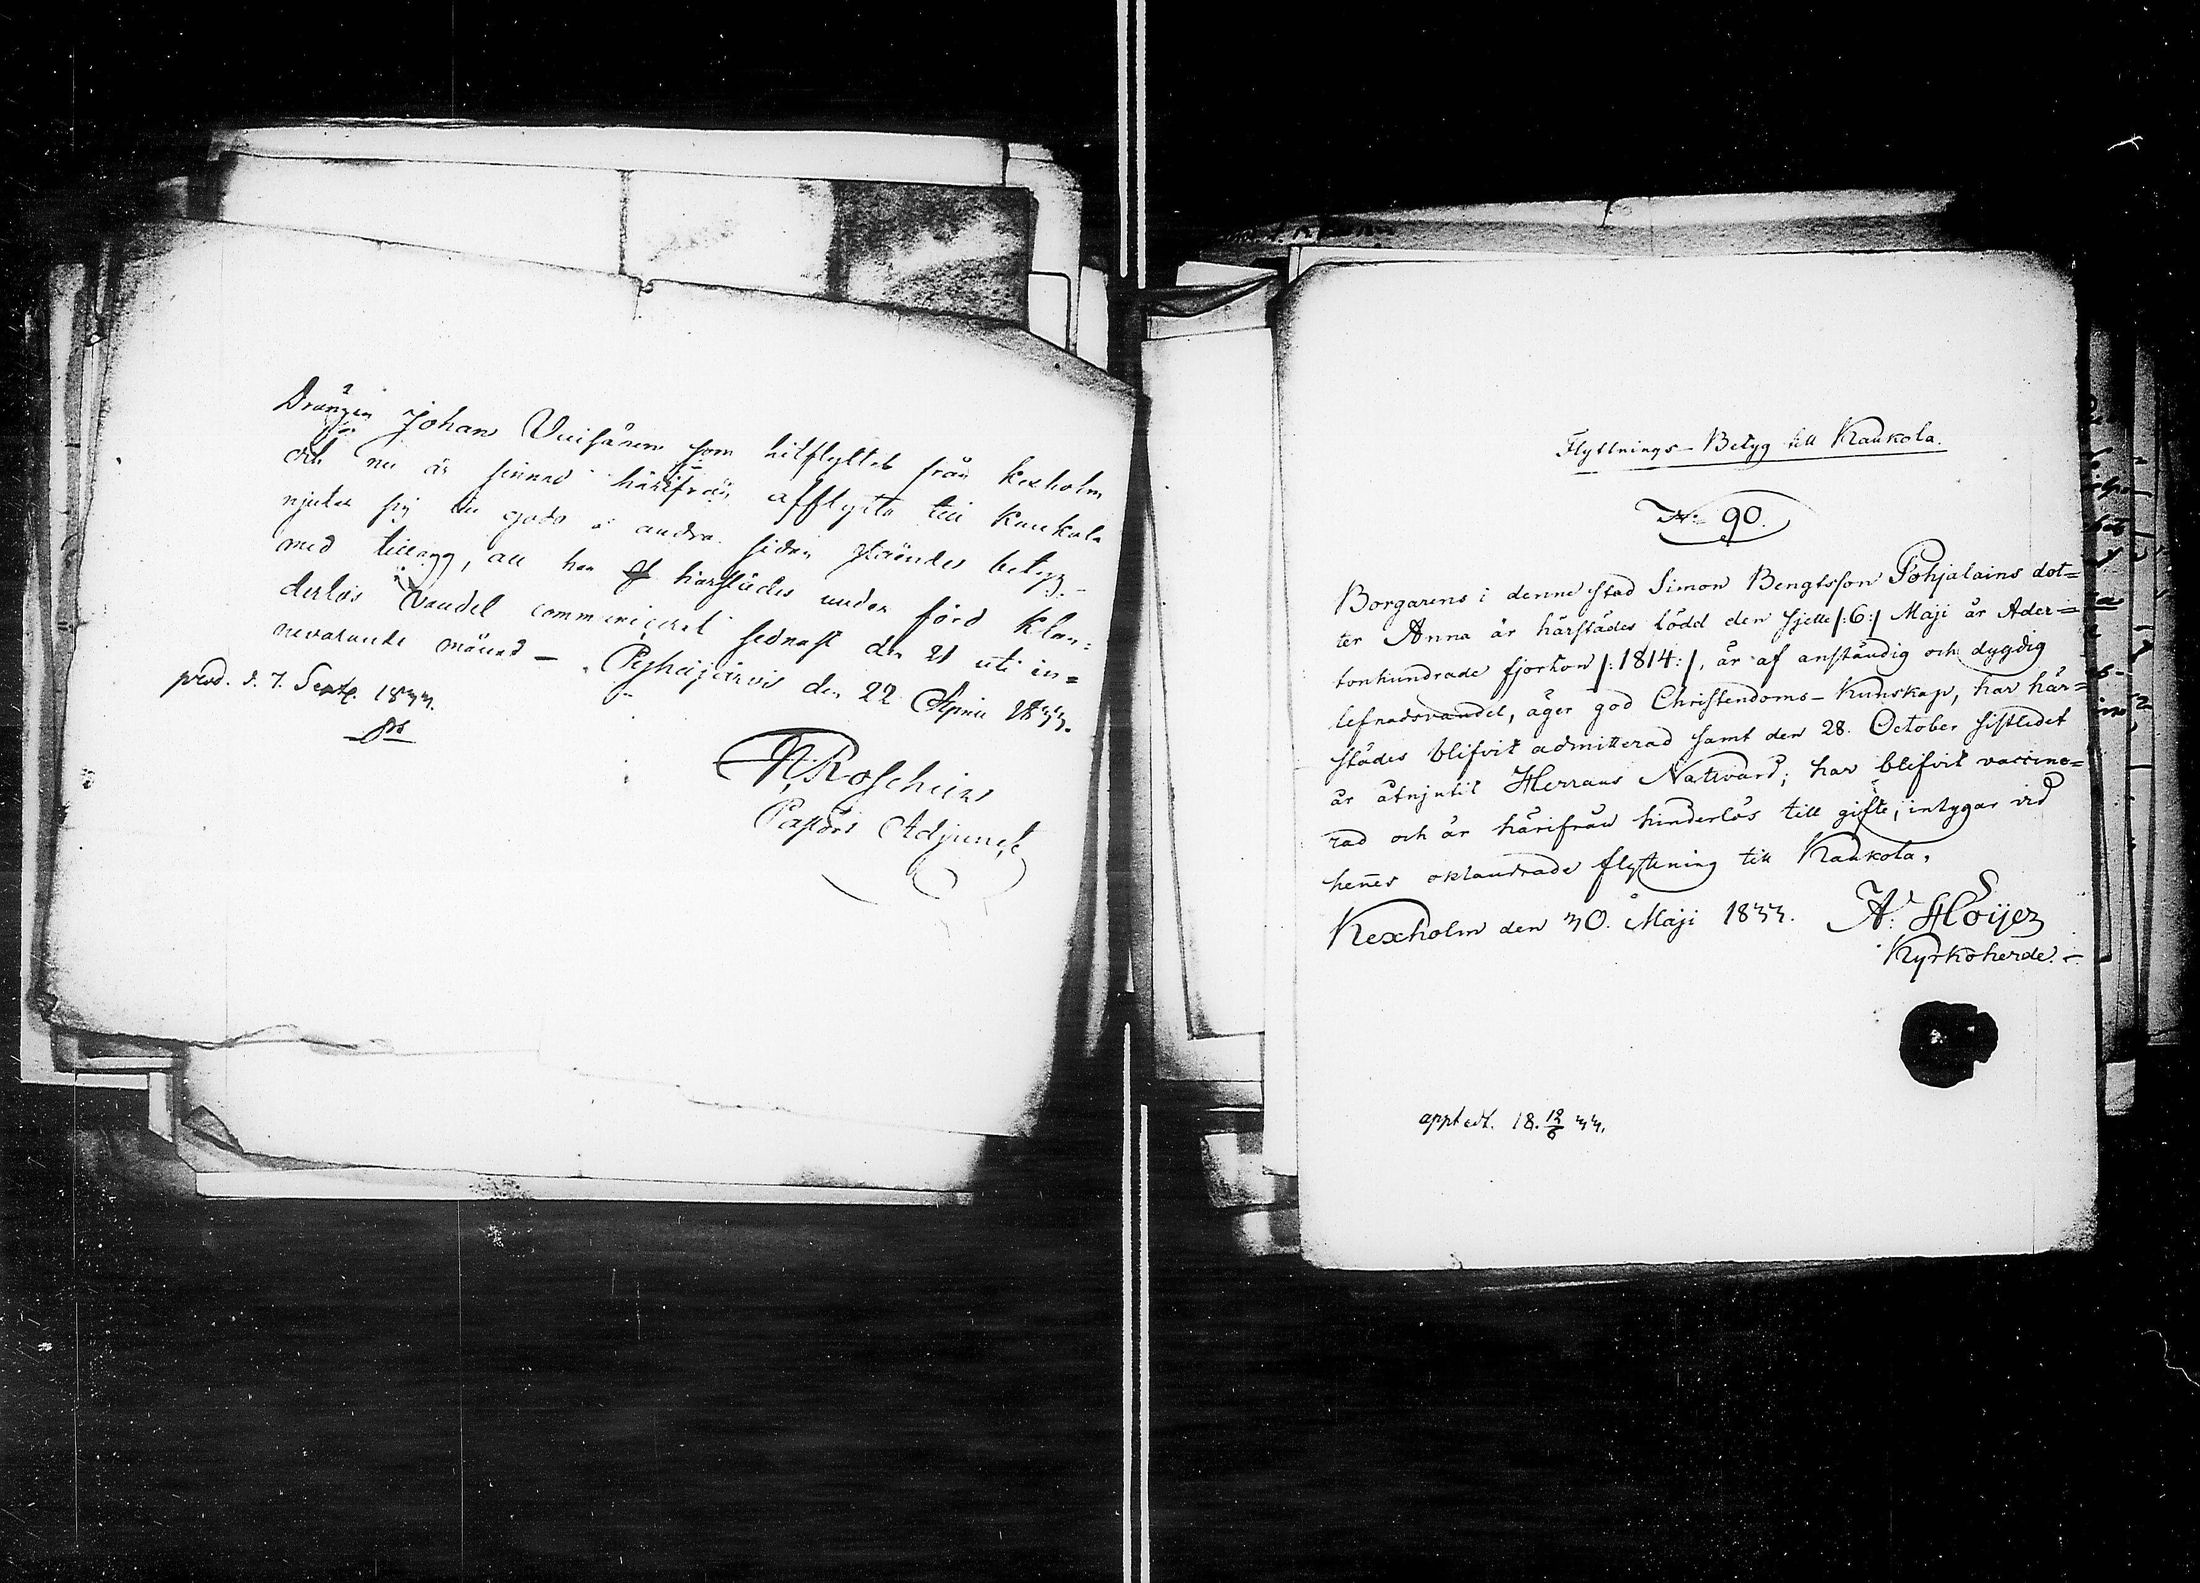 Drängen Johan som hitflyttat från Kexholm
och nu är sinnad härifrån afflytta till Kaukola
njuter sig till godo å andra sidan stående betyg.
med tillägg, att han härstädes under förd klan=
derlös vandel communicerat sednast den 21 uti in=
nevarande månad — Pyhäjärvi den 22 April 1833.
prod. d. 7. Sept. 1833.
Pastors Adjunct
Flyttnings-Betyg till Kaukola.
No 90.
Borgarens i denne stad Simon Bengtsson Pohjalains dot=
ter Anna är härstädes född den sjette /:6:/ Maji år Ader=
tonhundrade fjorton /:1814:/, är af anständig och dygdig
lefnadsvandel, äger god Christendoms-Kunskap, har här=
städes blifvit admitterad samt den 28. October sistledet
år åtnjutit Herrans Nattvard; har blifvit vaccine=
rad och är härifrån hinderlös till gifte; intygar vid
hen̄es oklandrade flyttning till Kaukola.
Kexholm den 30. Maji 1833. A. Höijer
Kyrkoherde.
18.12/6 33.